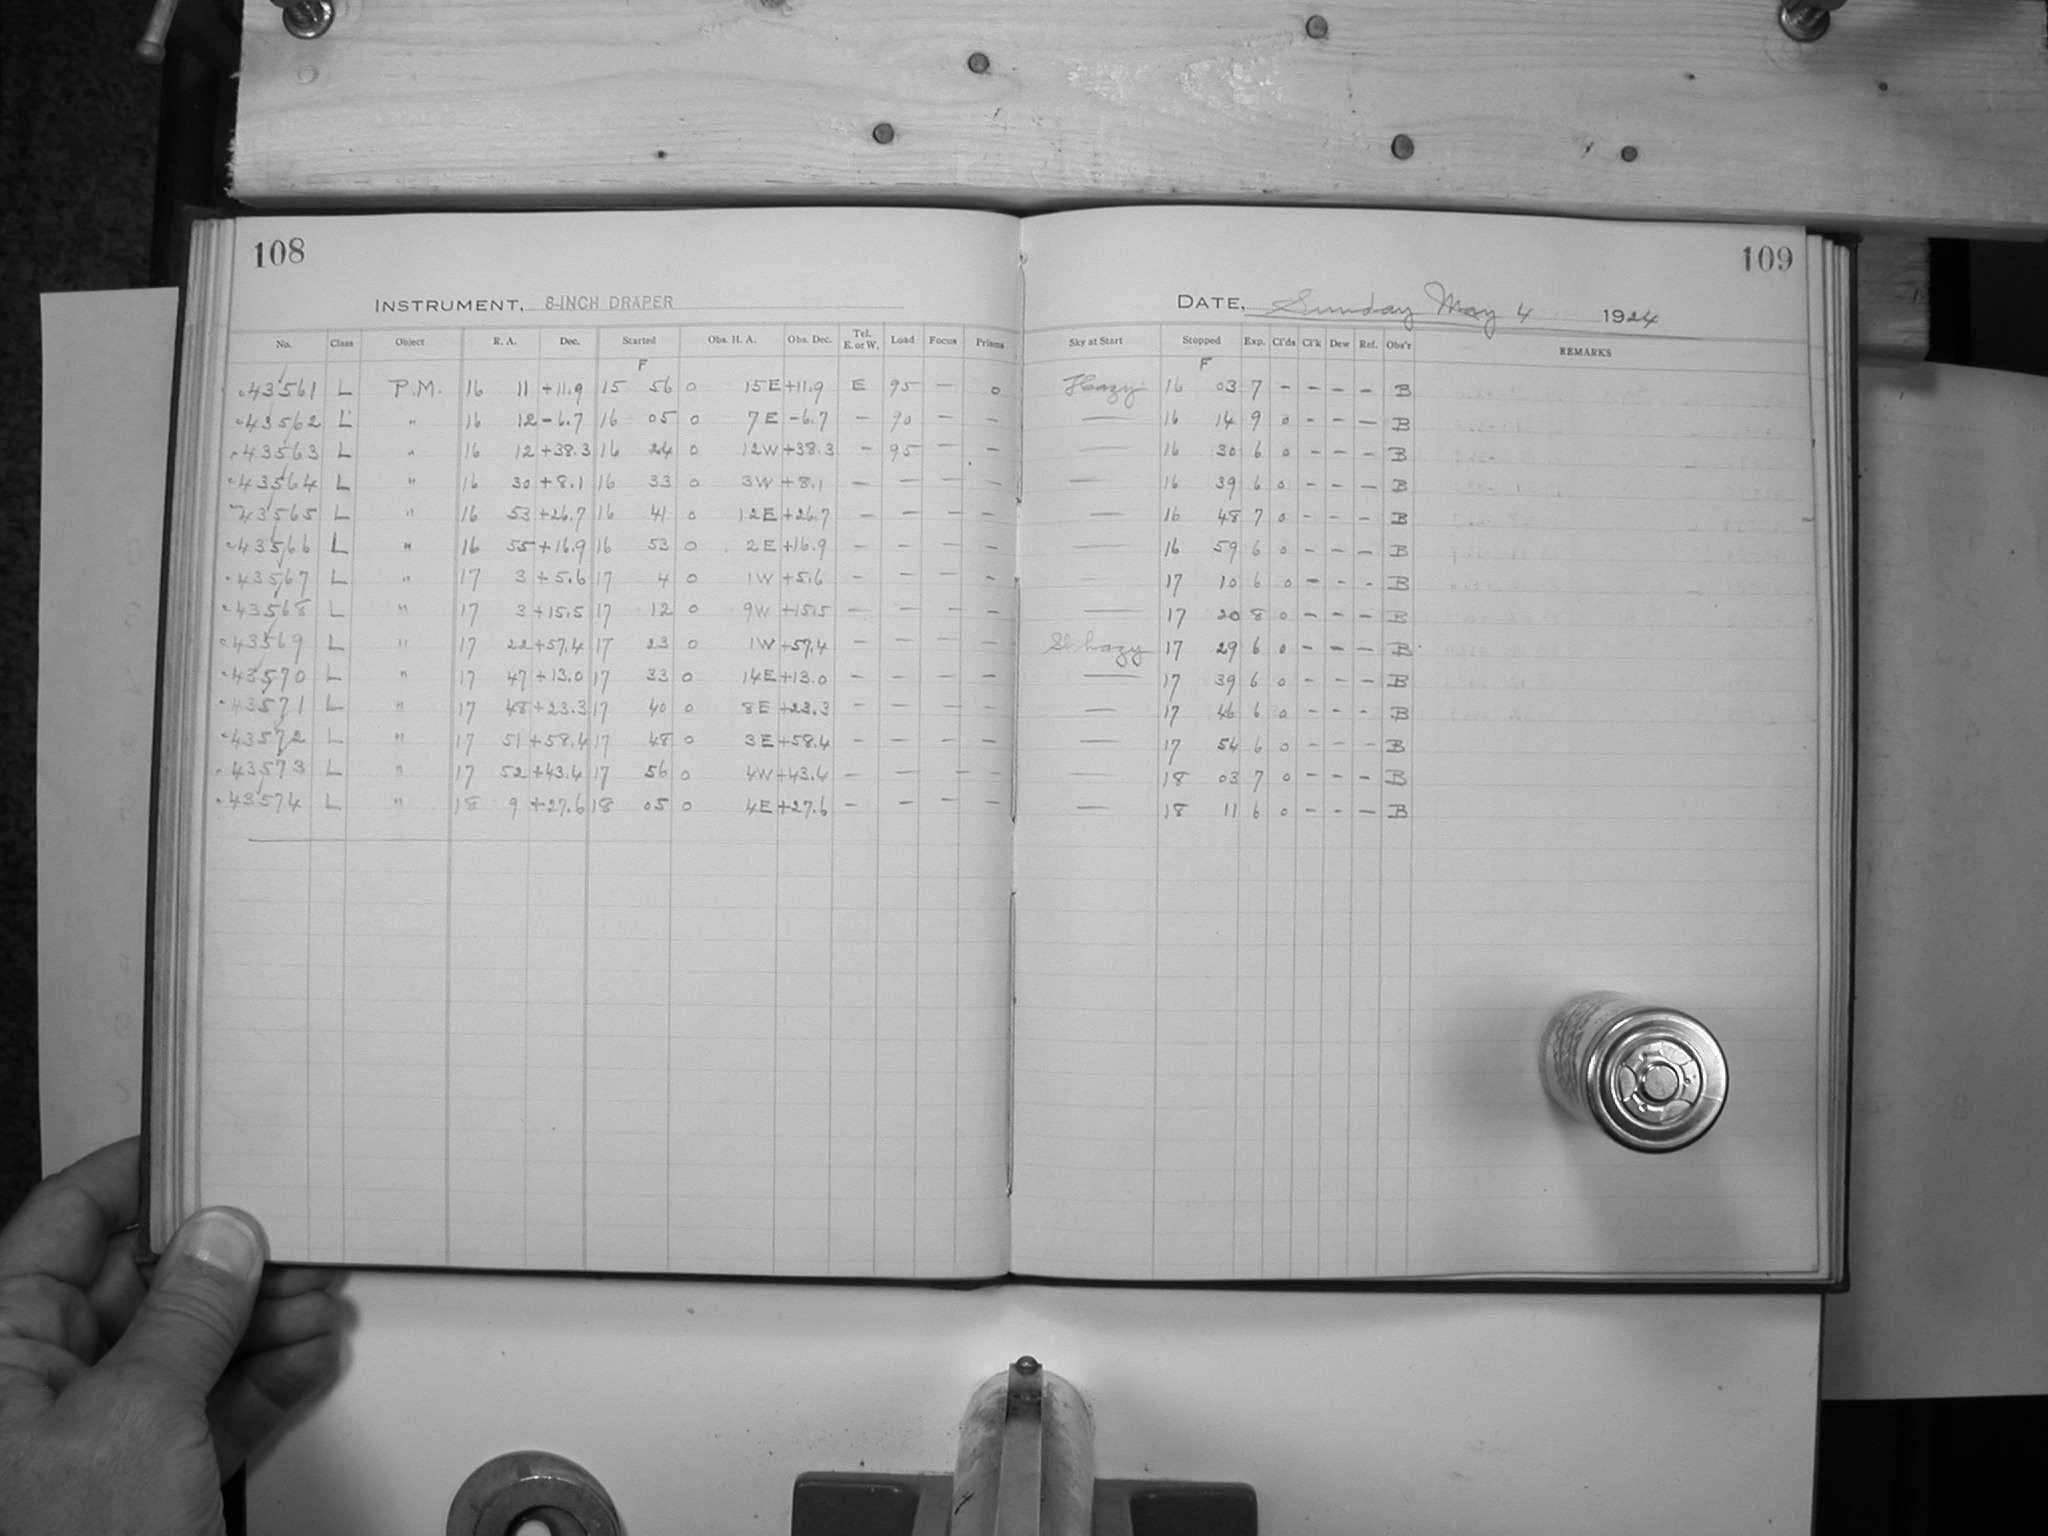 108
INSTRUMENT, 8-INCH DRAPER
No. Class Object R. A. Dec. Started Obs. H. A. Obs. Dec. Tel. E. or W. Load Focus Prisms
F
43561 L P.M. 16 11 +11.9 15 56 0 15E +11.9 E 95 — 0
43562 L " 16 12 -6.7 16 05 0 7E -6.7 — 90 — —
43563 L " 16 12 +38.3 16 24 0 12W +38.3 — 95 —
43564 L " 16 30 +8.1 16 33 0 3W +8.1 — — — —
43565 L " 16 53 +26.7 16 41 0 12E +26.7 — — — —
43566 L " 16 55 +16.9 16 53 0 2E +16.9 — — — —
43567 L " 17 3 +5.6 17 4 0 1W +5.6 — — — —
43568 L " 17 3 +15.5 17 12 0 9W +15.5 — — — —
43569 L " 17 22 +57.4 17 23 0 1W +57.4 — — — —
43570 L " 17 47 +13.0 17 33 0 14E +13.0 — — — —
43571 L " 17 48 +23.3 17 40 0 8E +23.3 — — — —
43572 L " 17 51 +58.4 17 48 0 3E +58.4 — — — —
43573 L " 17 52 +43.4 17 56 0 4W +43.4 — — — —
43574 L " 18 9 +27.6 18 05 0 4E +27.6 — — — —
109
DATE, Sunday May 4 1924
Sky at Start Stopped Exp. Cl'ds Cl'k Dew Ref. Obs'r REMARKS
F
Hazy 16 03 7 — — — — B
— 16 14 9 0 — — — B
— 16 30 6 0 — — — B
— 16 39 6 0 — — — B
— 16 48 7 0 — — — B
— 16 59 6 0 — — — B
— 17 10 6 0 — — — B
— 17 20 8 0 — — — B
Sl hazy 17 29 6 0 — — — B
— 17 39 6 0 — — — B
— 17 46 6 0 — — — B
— 17 54 6 0 — — — B
— 18 03 7 0 — — — B
— 18 11 6 0 — — — B